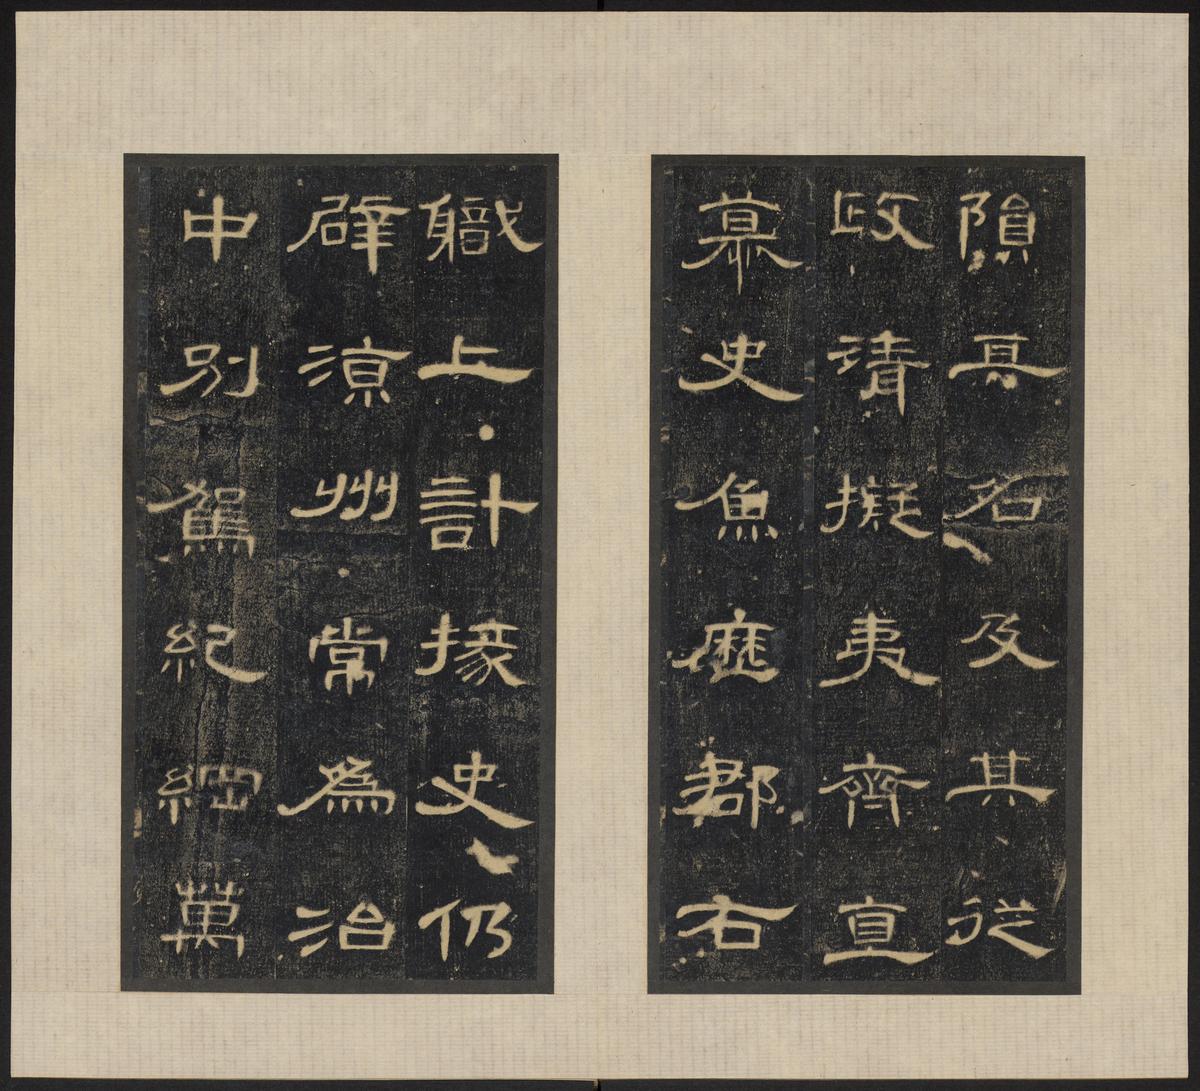 隕其名及其從
政清擬夷齊直
慕史魚歷郡右
職上計掾史仍
辟涼州常爲治
中別駕紀綱萬